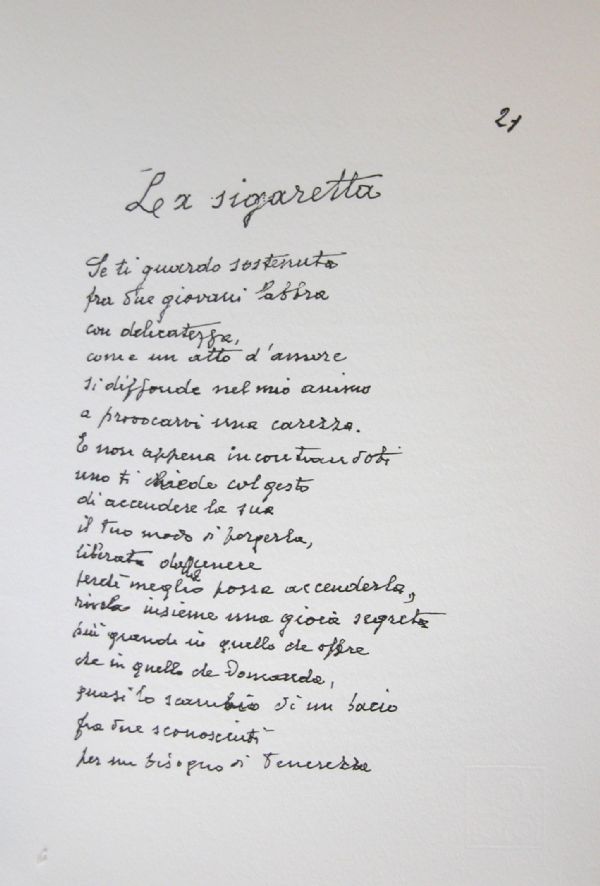 21
La sigaretta
Se ti guardo sostenuta
fra due giovani labbra
con delicatezza,
come un atto d'amore
si diffonde nel mio animo
a provocarvi una carezza.
E non appena incontrandoti
uno ti chiede col gesto
di accendere la sua
il tuo modo di porgerla,
liberata dalla cenere
perché meglio possa accenderla,
rivela insieme una gioia segreta
più grande in quello che offre
che in quello che domanda,
quasi lo scambio di un bacio
fra due sconosciuti
per un bisogno di tenerezza